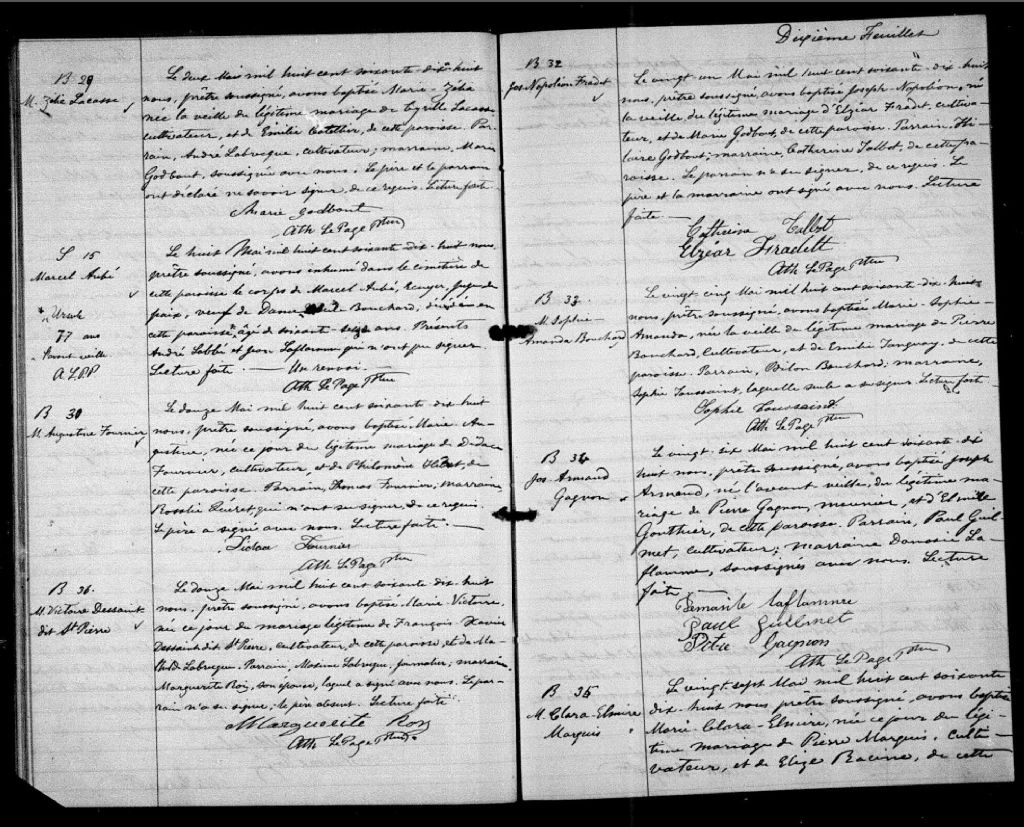 B 29
M. Zélie Lacasse
Le deux Mai mil huit cent soixante-dix-huit
nous, prêtre soussigné, avons baptisé Marie-Zélia
née la veille du légitime mariage de Cyrille Lacasse
cultivateur, et de Emilie de cette paroisse. Par-
rain, André Labrecque, cultivateur; marraine, Marie
Godbout, soussignée avec nous. Le père et le parrain
ont déclaré ne savoir signer, de ce requis. Lecture faite.
Marie Godbout
Ath LePage Ptre
S 15
Marcel Aubé
Le huit Mai mil huit cent soixante-dix-huit nous,
prêtre soussigné, avons inhumé dans le cimetière de
cette paroisse le corps de Marcel Aubé, Juge de
paix, veuf de Dame Bouchard, décédé en
cette paroisse, âgé de soixante-seize ans. Présents
André Labbé et Jean Laflamme qui n'ont pu signer.
Lecture faite. — Un renvoi.
Ath LePage Ptre
77 ans
A.L.P.P
B 30
M. Augustine Fournier
Le douze Mai mil huit cent soixante-dix-huit
nous, prêtre soussigné, avons baptisé Marie-Au-
gustine, née ce jour du légitime mariage de
Fournier, cultivateur, et de Philomène de
cette paroisse. Parrain, Thomas Fournier, marraine,
Rosalie qui n'ont su signer, de ce requis.
Le père a signé avec nous. Lecture faite. —
Fournier
Ath LePage Ptre
M. Victoire Dessaint
dit St Pierre
Le douze Mai mil huit cent soixante-dix-huit
nous, prêtre soussigné, avons baptisé Marie Victoire,
née ce jour du mariage légitime de François Xavier
Dessaint dit St Pierre, cultivateur, de cette paroisse, et de Ma-
thilde Labrecque. Parrain, Maxime Labrecque, journalier, marraine
Marguerite Roy, son épouse, laquelle a signé avec nous. Le par-
rain n'a su signer; le père absent. Lecture faite
Marguerite Roy
Ath LePage Ptre
Dixième Feuillet
B 32
Jos Napoléon Fradet
Le vingt un Mai mil huit cent soixante-dix-huit
nous, prêtre soussigné, avons baptisé Joseph-Napoléon, né
la veille du légitime mariage d'Elzéar Fradet, cultiva-
teur, et de Marie Godbout, de cette paroisse. Parrain, Hi-
laire Godbout; marraine, Catherine Talbot, de cette pa-
roisse. Le parrain n'a su signer, de ce requis. Le
père et la marraine ont signé avec nous. Lecture
faite —
Catherine Talbot
Elzéar Fradett
Ath LePage Ptre
B 33
M. Sophie-
Amanda Bouchard
Le vingt cinq Mai mil huit cent soixante-dix-huit
nous, prêtre soussigné, avons baptisé Marie-Sophie-
Amanda, née la veille du légitime mariage de Pierre
Bouchard, Cultivateur, et de Emilie Tanguay, de cette
paroisse. Parrain, Odilon Bouchard; marraine,
Sophie Toussaint, laquelle seule a su signer. Lecture faite.
Sophie Toussaint
Ath LePage Ptre
B 34
Jos Armand
Gagnon
Le vingt-six Mai mil huit cent soixante-dix
huit nous, prêtre soussigné, avons baptisé Joseph
Armand, né l'avant-veille, du légitime ma-
riage de Pierre Gagnon, meunier, et d'Elmire
Gouthier, de cette paroisse. Parrain, Paul Guil-
met, cultivateur; marraine La-
flamme, soussignés avec nous. Lecture
faite —
Laflamme
Paul Guilmet
Gagnon
Ath LePage Ptre
B 35
M. Clara-Elmire
Marquis
Le vingt-sept Mai mil huit cent soixante
dix-huit nous prêtre soussigné, avons baptisé
Marie-Clara-Elmire, née ce jour du légi-
time mariage de Pierre Marquis, Culti-
vateur, et de Elize Racine, de cette